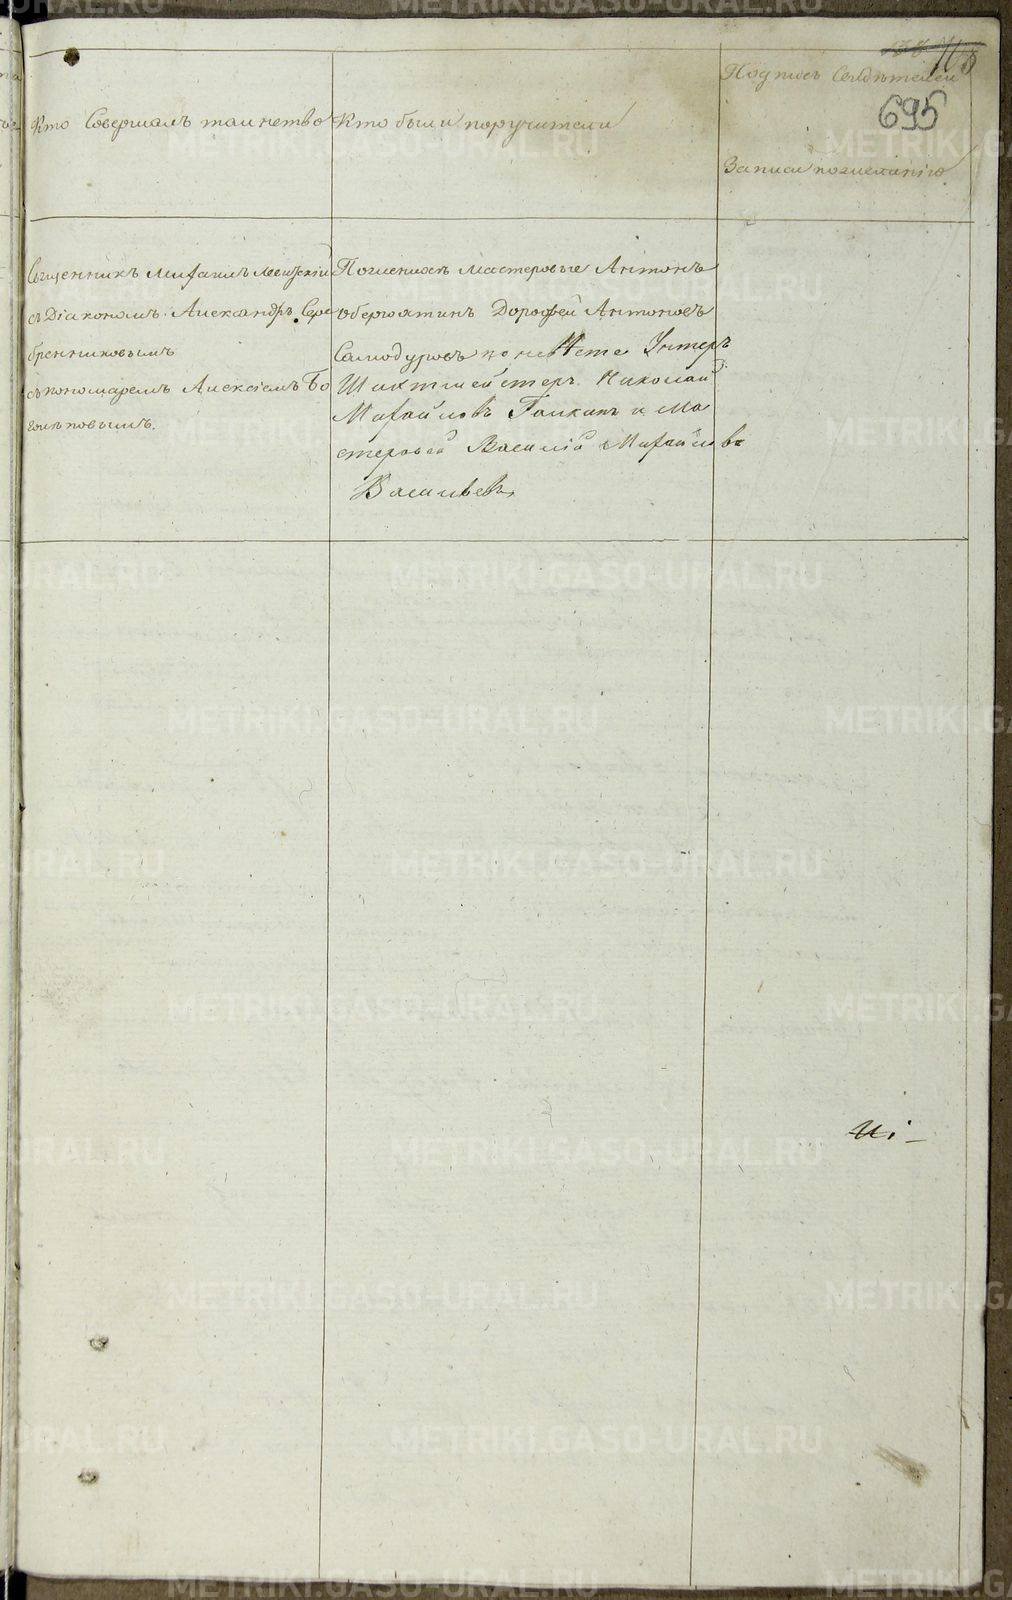 695
Подпись Свидѣтелей
Кто Совершалъ таинство
Кто были поручители
Записи по желанію
Священникъ Михаилъ
съ Діакономъ Александр. Сере
бренниковымъ
съ пономаремъ Алексіемъ Бо
голѣповымъ.
По женихѣ мастеровые Антонъ
Обертятинъ Дорофей Антоновъ
Самодуровъ по невѣсте Унтеръ
Шихтмейстеръ Николай
Михайловъ Галкинъ и Ма
стеровой Василій Михайловъ
Васильевъ
METRIKI.GASO-URAL.RU